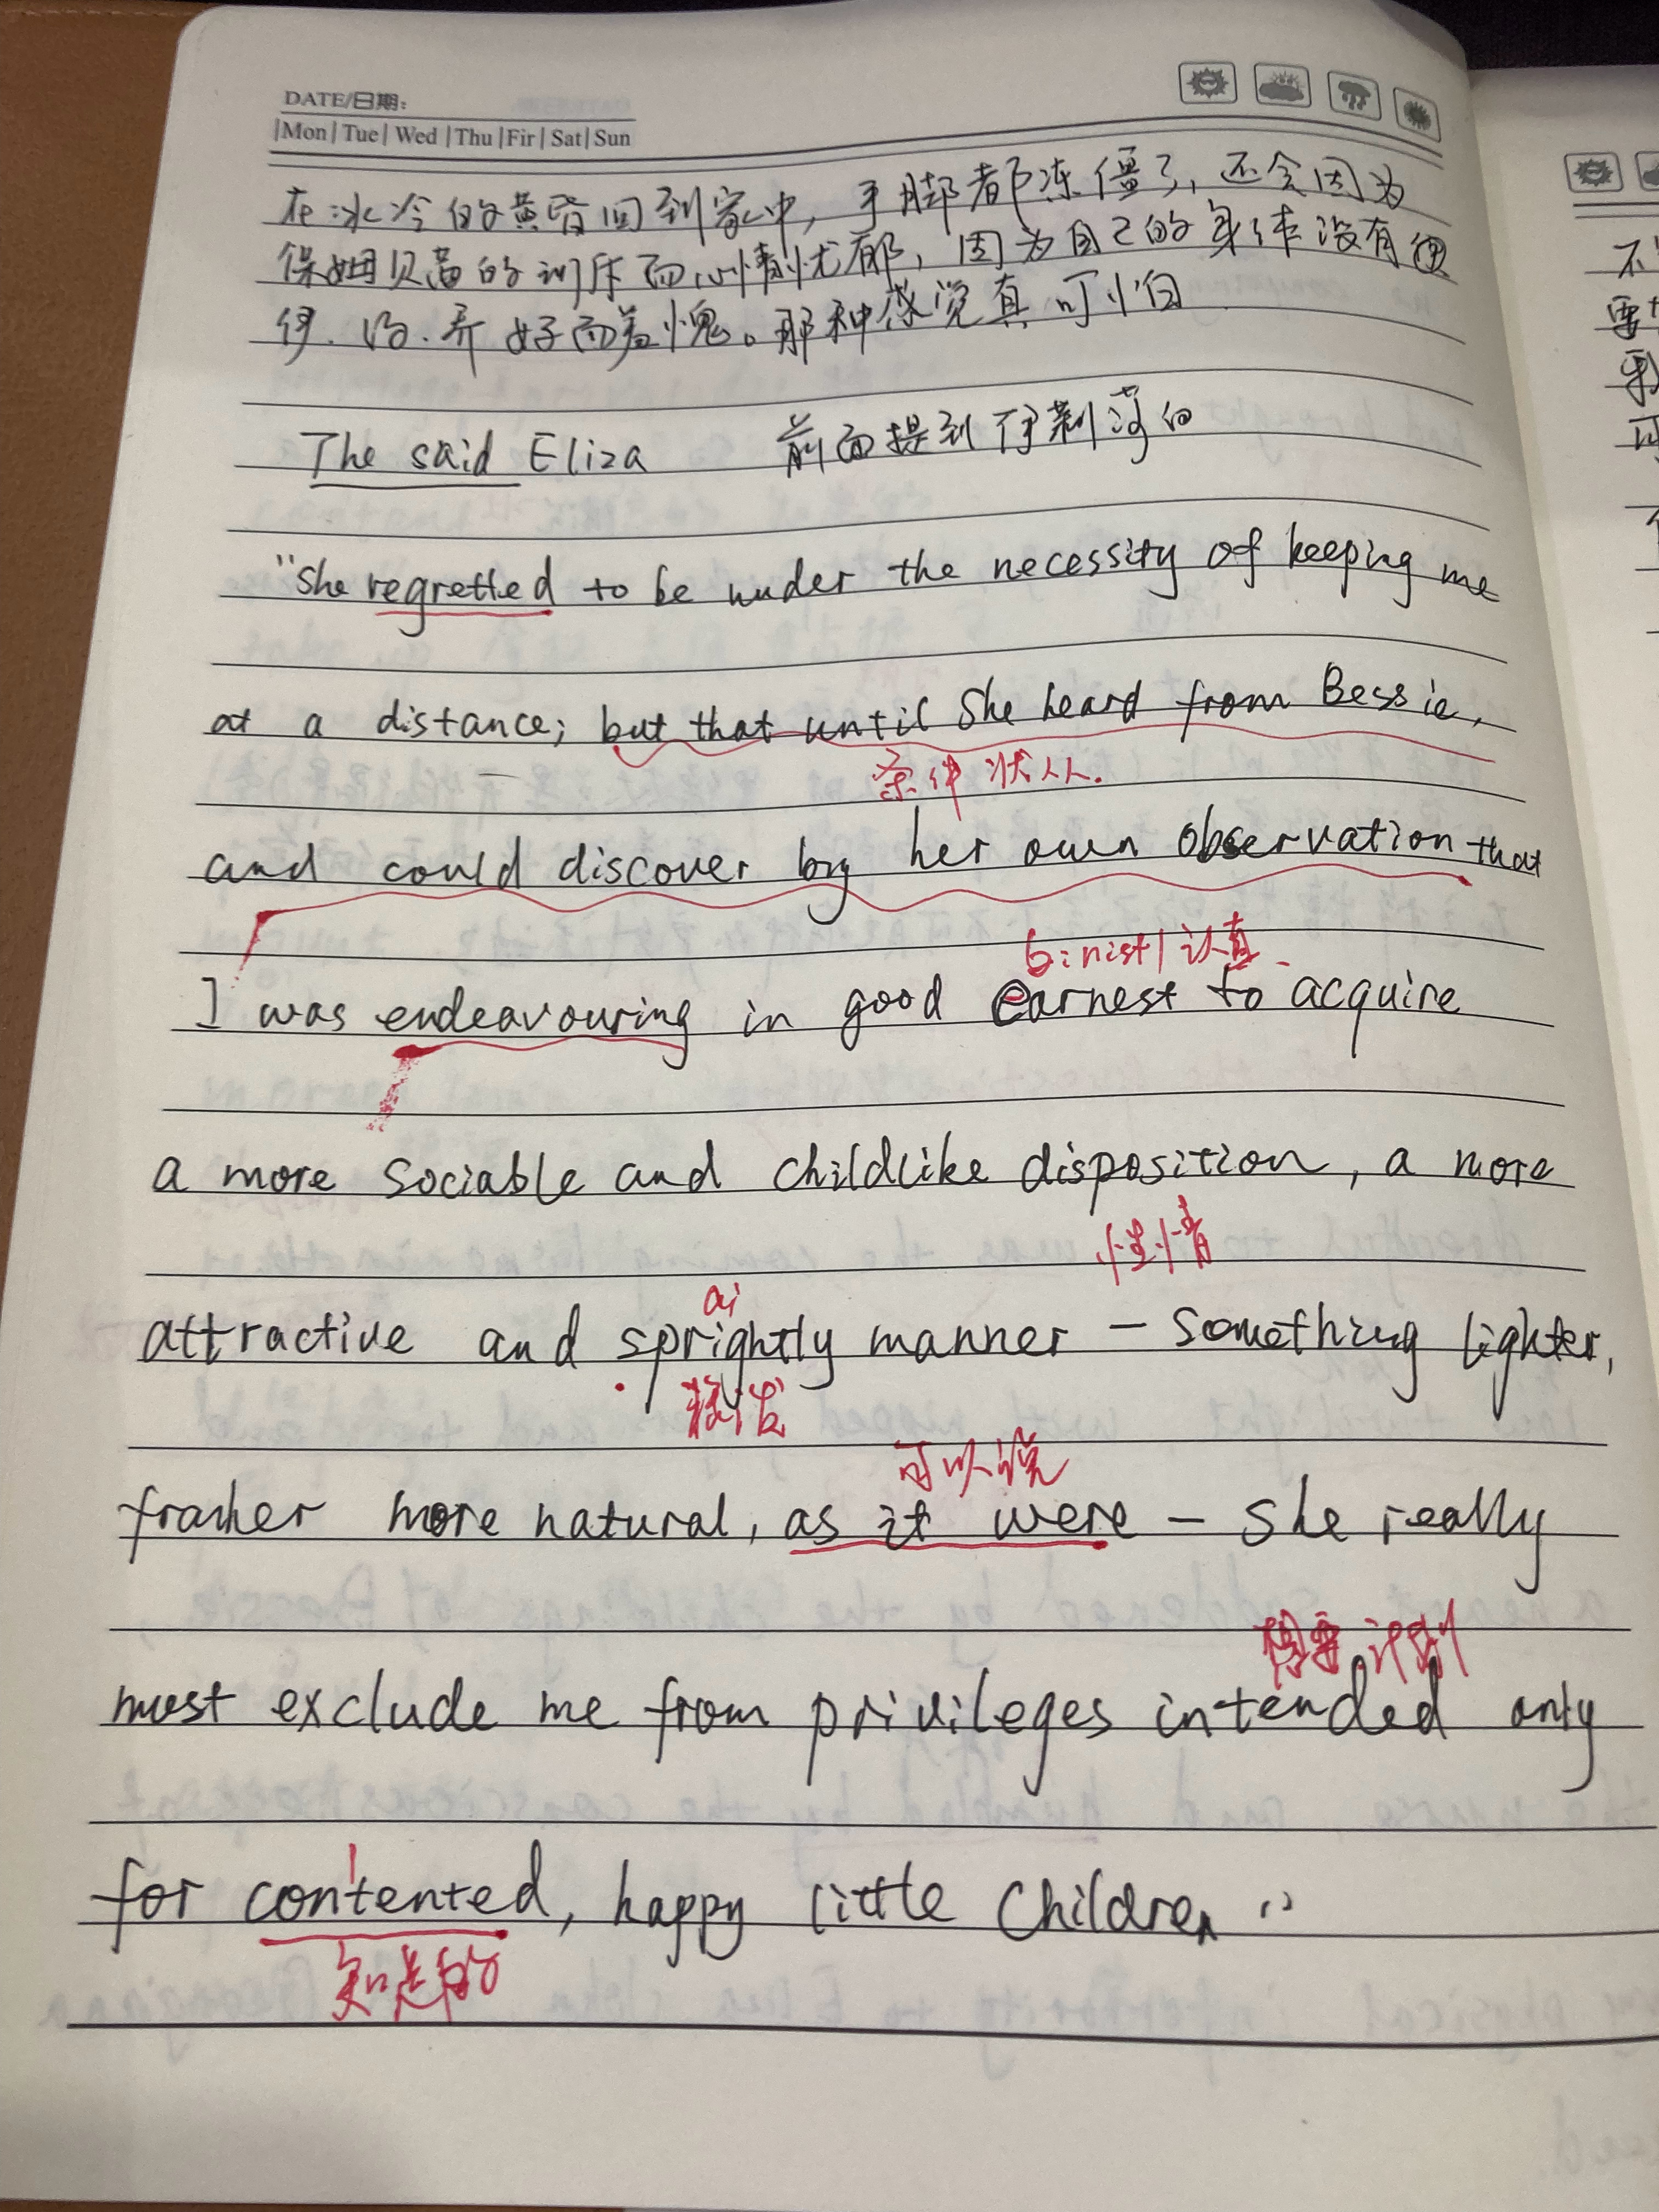 DATE/日期:
Mon | Tue | Wed | Thu | Fir | Sat | Sun
在冰冷的黄昏回到家中，手脚都冻僵了，还会因为
保姆贝茜的训斥而心情忧郁，因为自己的身体没有
伊．约．乔好而羞愧。那种感觉真可怕
The said Eliza 前面提到伊莉莎白
"She regretted to be under the necessity of keeping me
at a distance; but that until She heard from Bessie,
条件状从.
and could discover by her own observation that
ɜ:nist| 认真
I was endeavouring in good earnest to acquire
a more sociable and childlike disposition, a more
性情
ai
attractive and sprightly manner — something lighter,
活泼
可以说
franker more natural, as it were — she really
想要 计划
must exclude me from privileges intended only
for contented, happy little Children."
知足的